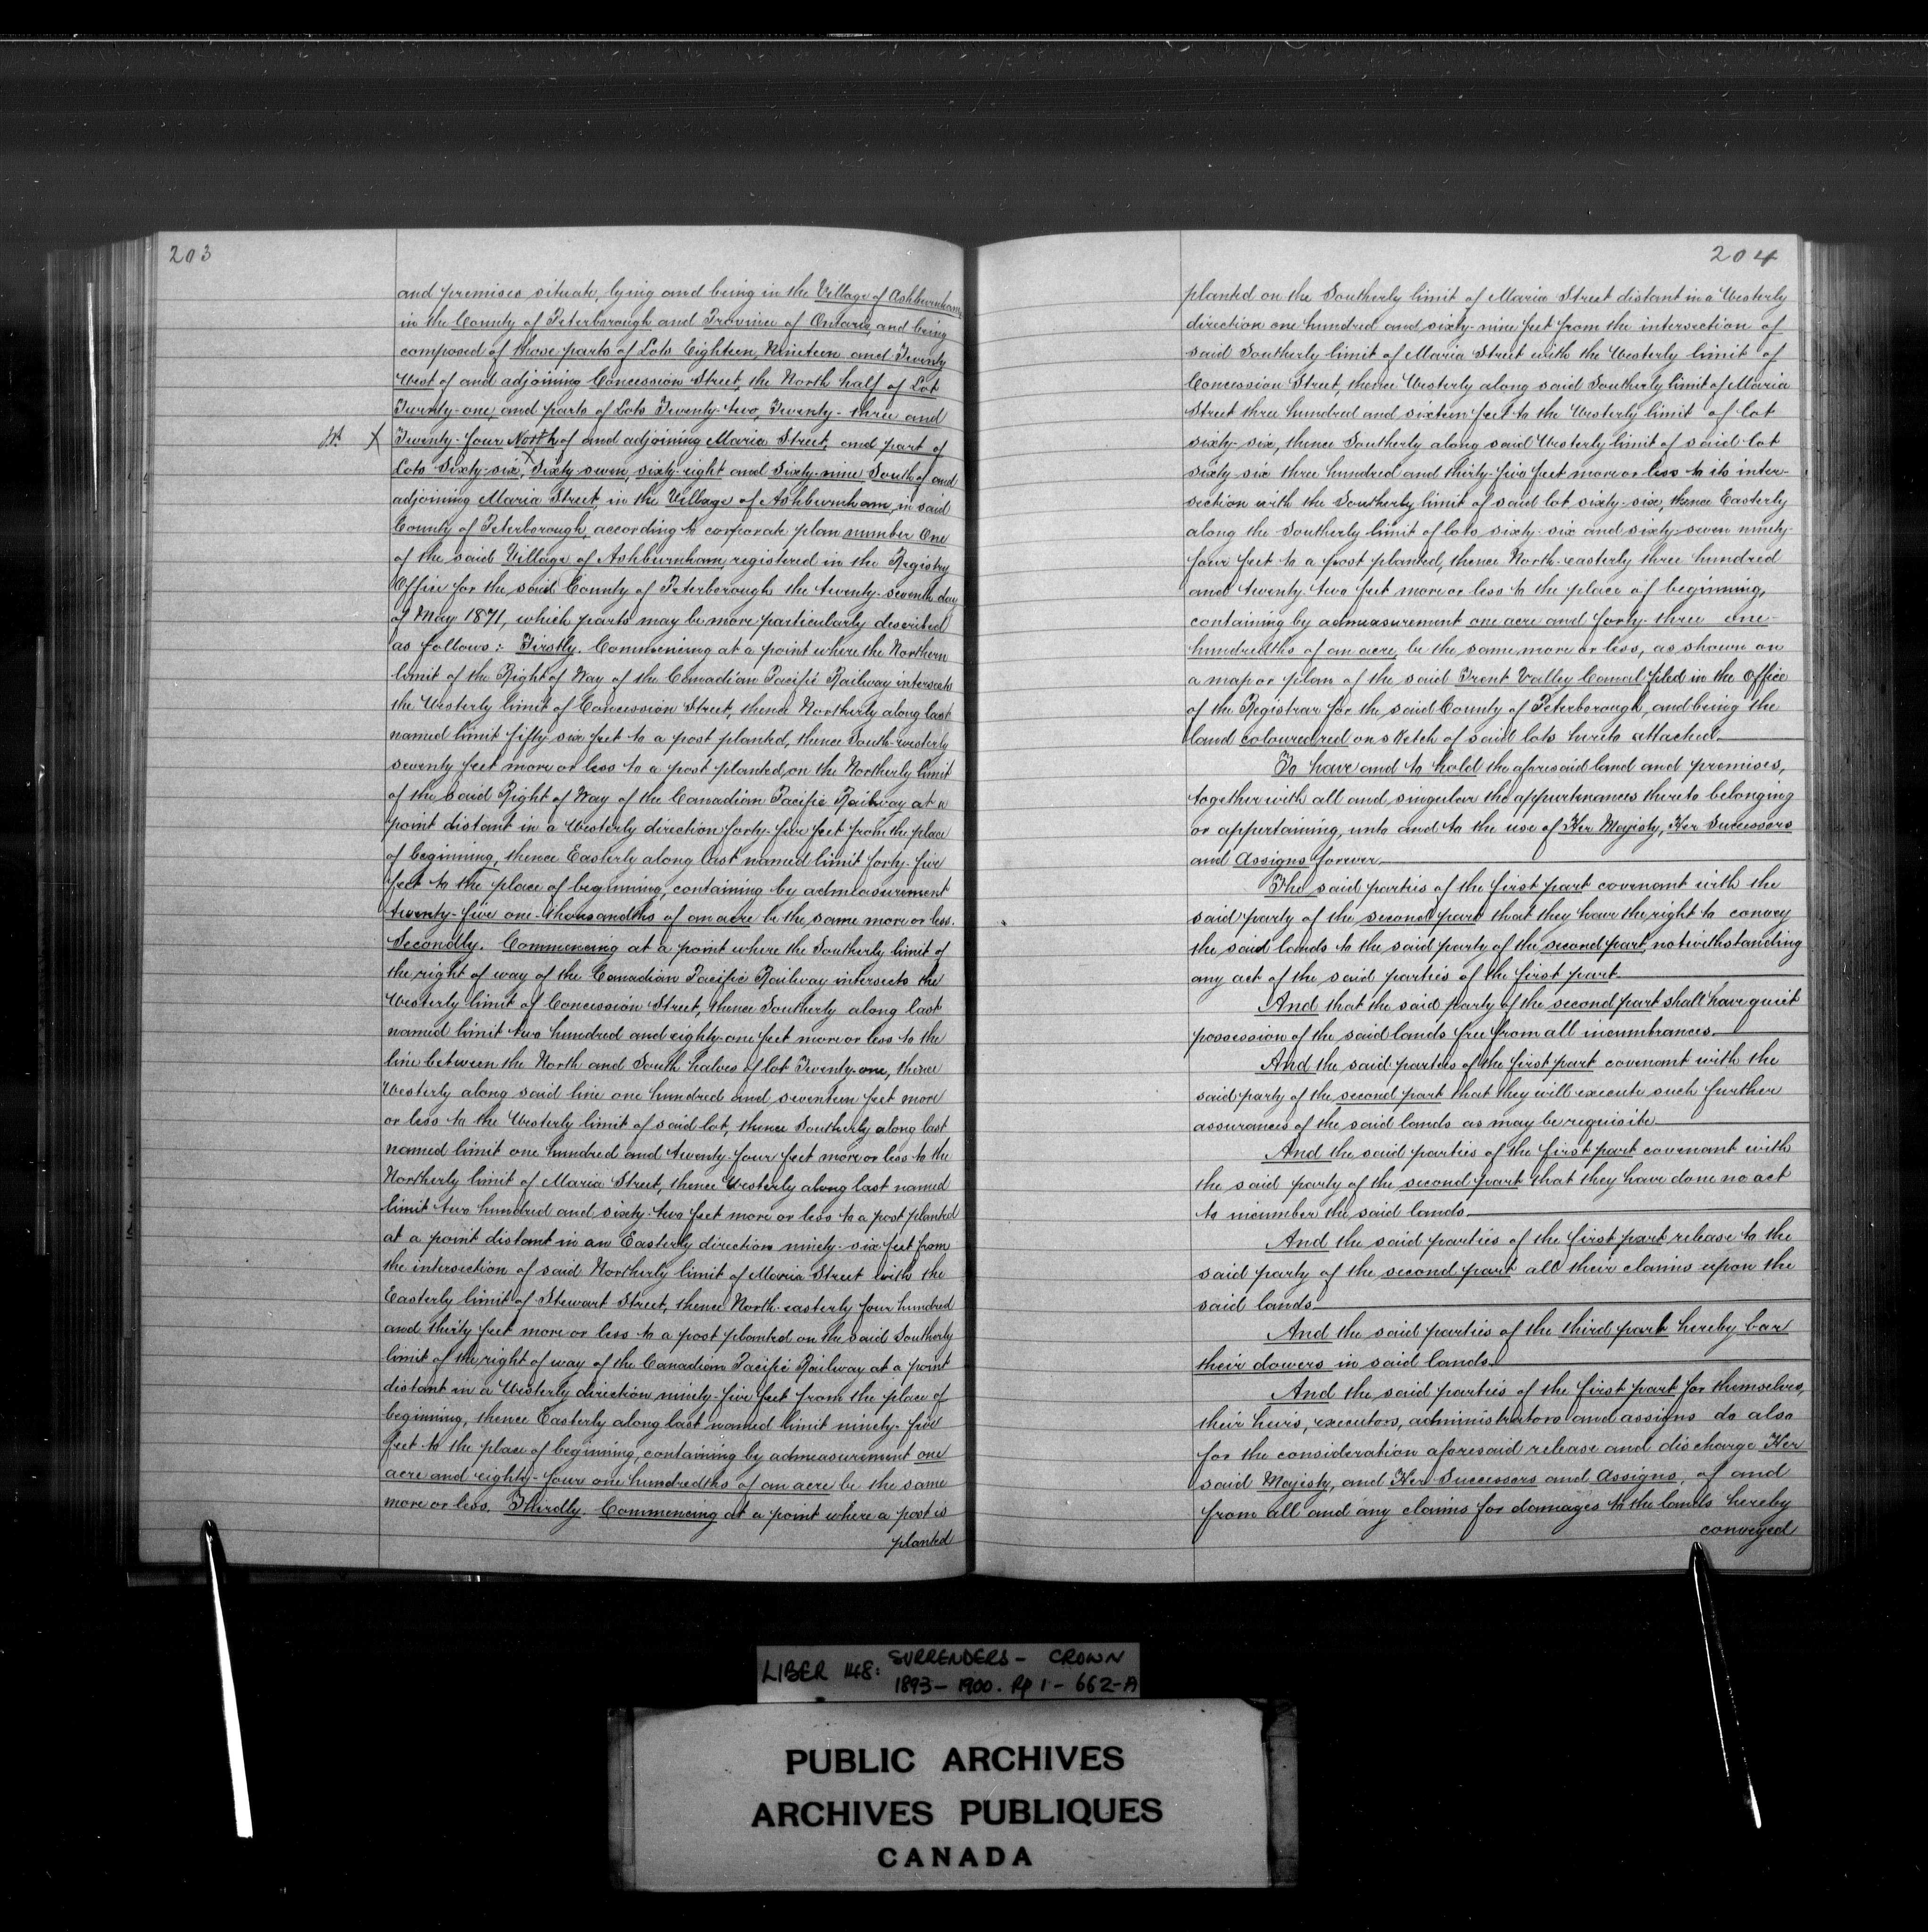 203
and premises situate, lying and being in the Village of Ashburnham
in the County of Peterborough and Province of Ontario and being
composed of those parts of Lots Eighteen, Nineteen and Twenty
West of and adjoining Concession Street, the North half of Lot
Twenty-one, and parts of Lots Twenty-two, Twenty-three and
X Twenty-four North of and adjoining Maria Street, and part of
Lots Sixty-six, Sixty-seven, sixty-eight and Sixty-nine South of and
adjoining Maria Street, in the Village of Ashburnham, in said
County of Peterborough, according to corporate plan number One
of the said Village of Ashburnham, registered in the Registry
Office for the said County of Peterborough the twenty-seventh day
of May 1871, which parts may be more particularly described
as follows: Firstly. Commencing at a point where the Northern
limit of the Right of Way of the Canadian Pacific Railway intersects
the Westerly limit of Concession Street, thence Northerly along last
named limit fifty six feet to a post planted, thence South-westerly
seventy feet more or less to a post planted, on the Northerly limit
of the said Right of Way of the Canadian Pacific Railway at a
point distant in a Westerly direction forty-five feet from the place
of beginning, thence Easterly along last named limit forty-five
feet to the place of beginning, containing by admeasurement
twenty-five one-thousandths of an acre be the same more or less.
Secondly. Commencing at a point where the Southerly limit of
the right of way of the Canadian Pacific Railway intersects the
Westerly limit of Concession Street, thence Southerly along last
named limit two hundred and eighty-one feet more or less to the
line between the North and South halves of lot Twenty-one, thence
Westerly along said line one hundred and seventeen feet more
or less to the Westerly limit of said lot, thence Southerly along last
named limit one hundred and twenty-four feet more or less to the
Northerly limit of Maria Street, thence Westerly along last named
limit two hundred and sixty-two feet more or less to a post planted
at a point distant in an Easterly direction ninety-six feet from
the intersection of said Northerly limit of Maria Street with the
Easterly limit of Stewart Street, thence North-easterly four hundred
and thirty feet more or less to a post planted on the said Southerly
limit of the right of way of the Canadian Pacific Railway at a point
distant in a Westerly direction ninety-five feet from the place of
beginning, thence Easterly along last named limit ninety-five
feet to the place of beginning, containing by admeasurement one
acre and eighty-four one hundredths of an acre be the same
more or less. Thirdly. Commencing at a point where a post is
planted
204
planted on the Southerly limit of Maria Street distant in a Westerly
direction one hundred and sixty-nine feet from the intersection of
said Southerly limit of Maria Street with the Westerly limit of
Concession Street, thence Westerly along said Southerly limit of Maria
Street three hundred and sixteen feet to the Westerly limit of lot
sixty-six, thence Southerly along said Westerly limit of said lot
sixty six three hundred and thirty-five feet more or less to its inter-
section with the Southerly limit of said lot sixty-six, thence Easterly
along the Southerly limit of lots sixty-six and sixty-seven ninety-
four feet to a post planted, thence North-easterly three hundred
and twenty two feet more or less to the place of beginning,
containing by admeasurement one acre and forty-three one-
hundredths of an acre, be the same more or less, as shown on
a map or plan of the said Trent Valley Canal filed in the Office
of the Registrar for the said County of Peterborough, and being the
land coloured red on sketch of said lots hereto attached
To have and to hold the aforesaid land and premises,
together with all and singular the appurtenances thereto belonging
or appertaining, unto and to the use of Her Majesty, Her Successors
and Assigns forever
The said parties of the first part covenant with the
said party of the second part that they have the right to convey
the said lands to the said party of the second part, notwithstanding
any act of the said parties of the first part
And that the said party of the second part shall have quiet
possession of the said lands free from all incumbrances
And the said parties of the first part covenant with the
said party of the second part that they will execute such further
assurances of the said lands as may be requisite
And the said parties of the first part covenant with
the said party of the second part that they have done no act
to incumber the said lands
And the said parties of the first part release to the
said party of the second part all their claims upon the
said lands
And the said parties of the third part hereby bar
their dowers in said lands
And the said parties of the first part for themselves,
their heirs, executors, administrators and assigns do also
for the consideration aforesaid release and discharge Her
said Majesty, and Her Successors and Assigns, of and
from all and any claims for damages to the lands hereby
conveyed
LIBER 148: SURRENDERS - CROWN
1893 - 1900. Pp 1 - 662-A
PUBLIC ARCHIVES
ARCHIVES PUBLIQUES
CANADA